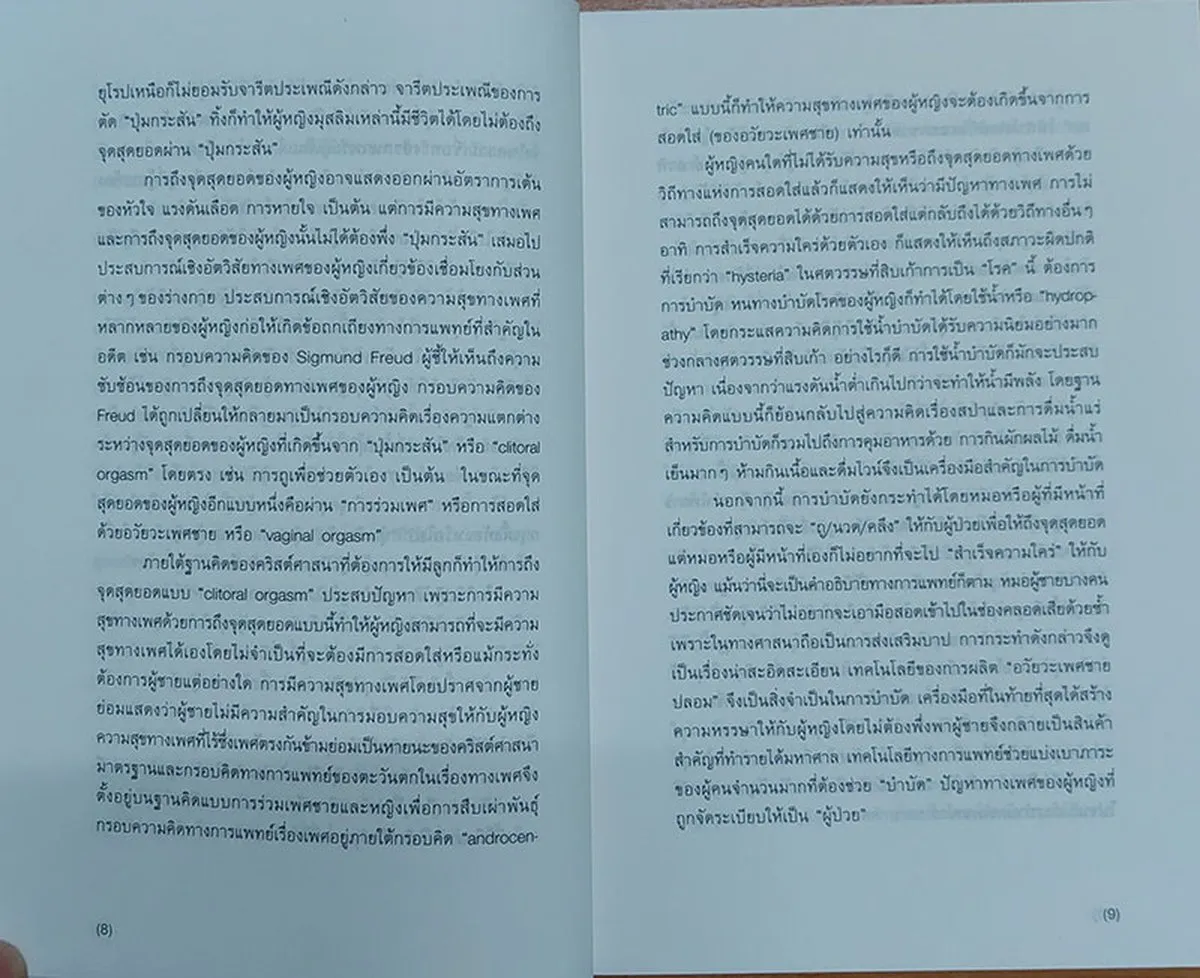 ยุโรปเหนือก็ไม่ยอมรับจารีตประเพณีดังกล่าว จารีตประเพณีของการ
ตัด “ปุ่มกระสัน” ทิ้งก็ทำให้ผู้หญิงมุสลิมเหล่านี้มีชีวิตได้โดยไม่ต้องถึง
จุดสุดยอดผ่าน “ปุ่มกระสัน”
การถึงจุดสุดยอดของผู้หญิงอาจแสดงออกผ่านอัตราการเต้น
ของหัวใจ แรงดันเลือด การหายใจ เป็นต้น แต่การมีความสุขทางเพศ
และการถึงจุดสุดยอดของผู้หญิงนั้นไม่ได้ต้องพึ่ง “ปุ่มกระสัน” เสมอไป
ประสบการณ์เชิงอัตวิสัยทางเพศของผู้หญิงเกี่ยวข้องเชื่อมโยงกับส่วน
ต่างๆ ของร่างกาย ประสบการณ์เชิงอัตวิสัยของความสุขทางเพศที่
หลากหลายของผู้หญิงก่อให้เกิดข้อถกเถียงทางการแพทย์ที่สำคัญใน
อดีต เช่น กรอบความคิดของ Sigmund Freud ผู้ชี้ให้เห็นถึงความ
ซับซ้อนของการถึงจุดสุดยอดทางเพศของผู้หญิง กรอบความคิดของ
Freud ได้ถูกเปลี่ยนให้กลายมาเป็นกรอบความคิดเรื่องความแตกต่าง
ระหว่างจุดสุดยอดของผู้หญิงที่เกิดขึ้นจาก “ปุ่มกระสัน” หรือ “clitoral
orgasm” โดยตรง เช่น การถูเพื่อช่วยตัวเอง เป็นต้น ในขณะที่จุด
สุดยอดของผู้หญิงอีกแบบหนึ่งคือผ่าน “การร่วมเพศ” หรือการสอดใส่
ด้วยอวัยวะเพศชาย หรือ “vaginal orgasm”
ภายใต้ฐานคิดของคริสต์ศาสนาที่ต้องการให้มีลูกก็ทำให้การถึง
จุดสุดยอดแบบ “clitoral orgasm” ประสบปัญหา เพราะการมีความ
สุขทางเพศด้วยการถึงจุดสุดยอดแบบนี้ทำให้ผู้หญิงสามารถที่จะมีความ
สุขทางเพศได้เองโดยไม่จำเป็นที่จะต้องมีการสอดใส่หรือแม้กระทั่ง
ต้องการผู้ชายแต่อย่างใด การมีความสุขทางเพศโดยปราศจากผู้ชาย
ย่อมแสดงว่าผู้ชายไม่มีความสำคัญในการมอบความสุขให้กับผู้หญิง
ความสุขทางเพศที่ไร้ซึ่งเพศตรงกันข้ามย่อมเป็นหายนะของคริสต์ศาสนา
มาตรฐานและกรอบคิดทางการแพทย์ของตะวันตกในเรื่องทางเพศจึง
ตั้งอยู่บนฐานคิดแบบการร่วมเพศชายและหญิงเพื่อการสืบเผ่าพันธุ์
กรอบความคิดทางการแพทย์เรื่องเพศอยู่ภายใต้กรอบคิด “androcen-
(8)
tric” แบบนี้ก็ทำให้ความสุขทางเพศของผู้หญิงจะต้องเกิดขึ้นจากการ
สอดใส่ (ของอวัยวะเพศชาย) เท่านั้น
ผู้หญิงคนใดที่ไม่ได้รับความสุขหรือถึงจุดสุดยอดทางเพศด้วย
วิถีทางแห่งการสอดใส่แล้วก็แสดงให้เห็นว่ามีปัญหาทางเพศ การไม่
สามารถถึงจุดสุดยอดได้ด้วยการสอดใส่แต่กลับถึงได้ด้วยวิถีทางอื่นๆ
อาทิ การสำเร็จความใคร่ด้วยตัวเอง ก็แสดงให้เห็นถึงสภาวะผิดปกติ
ที่เรียกว่า “hysteria” ในศตวรรษที่สิบเก้าการเป็น “โรค” นี้ ต้องการ
การบำบัด หนทางบำบัดโรคของผู้หญิงก็ทำได้โดยใช้น้ำหรือ “hydrop-
athy” โดยกระแสความคิดการใช้น้ำบำบัดได้รับความนิยมอย่างมาก
ช่วงกลางศตวรรษที่สิบเก้า อย่างไรก็ดี การใช้น้ำบำบัดก็มักจะประสบ
ปัญหา เนื่องจากว่าแรงดันน้ำต่ำเกินไปกว่าจะทำให้น้ำมีพลัง โดยฐาน
ความคิดแบบนี้ก็ย้อนกลับไปสู่ความคิดเรื่องสปาและการดื่มน้ำแร่
สำหรับการบำบัดก็รวมไปถึงการคุมอาหารด้วย การกินผักผลไม้ ดื่มน้ำ
เย็นมากๆ ห้ามกินเนื้อและดื่มไวน์จึงเป็นเครื่องมือสำคัญในการบำบัด
นอกจากนี้ การบำบัดยังกระทำได้โดยหมอหรือผู้ที่มีหน้าที่
เกี่ยวข้องที่สามารถจะ “ถู/นวด/คลึง” ให้กับผู้ป่วยเพื่อให้ถึงจุดสุดยอด
แต่หมอหรือผู้มีหน้าที่เองก็ไม่อยากที่จะไป “สำเร็จความใคร่” ให้กับ
ผู้หญิง แม้นว่านี่จะเป็นคำอธิบายทางการแพทย์ก็ตาม หมอผู้ชายบางคน
ประกาศชัดเจนว่าไม่อยากจะเอามือสอดเข้าไปในช่องคลอดเสียด้วยซ้ำ
เพราะในทางศาสนาถือเป็นการส่งเสริมบาป การกระทำดังกล่าวจึงดู
เป็นเรื่องน่าสะอิดสะเอียน เทคโนโลยีของการผลิต “อวัยวะเพศชาย
ปลอม” จึงเป็นสิ่งจำเป็นในการบำบัด เครื่องมือที่ในท้ายที่สุดได้สร้าง
ความหรรษาให้กับผู้หญิงโดยไม่ต้องพึ่งพาผู้ชายจึงกลายเป็นสินค้า
สำคัญที่ทำรายได้มหาศาล เทคโนโลยีทางการแพทย์ช่วยแบ่งเบาภาระ
ของผู้คนจำนวนมากที่ต้องช่วย “บำบัด” ปัญหาทางเพศของผู้หญิงที่
ถูกจัดระเบียบให้เป็น “ผู้ป่วย”
(9)